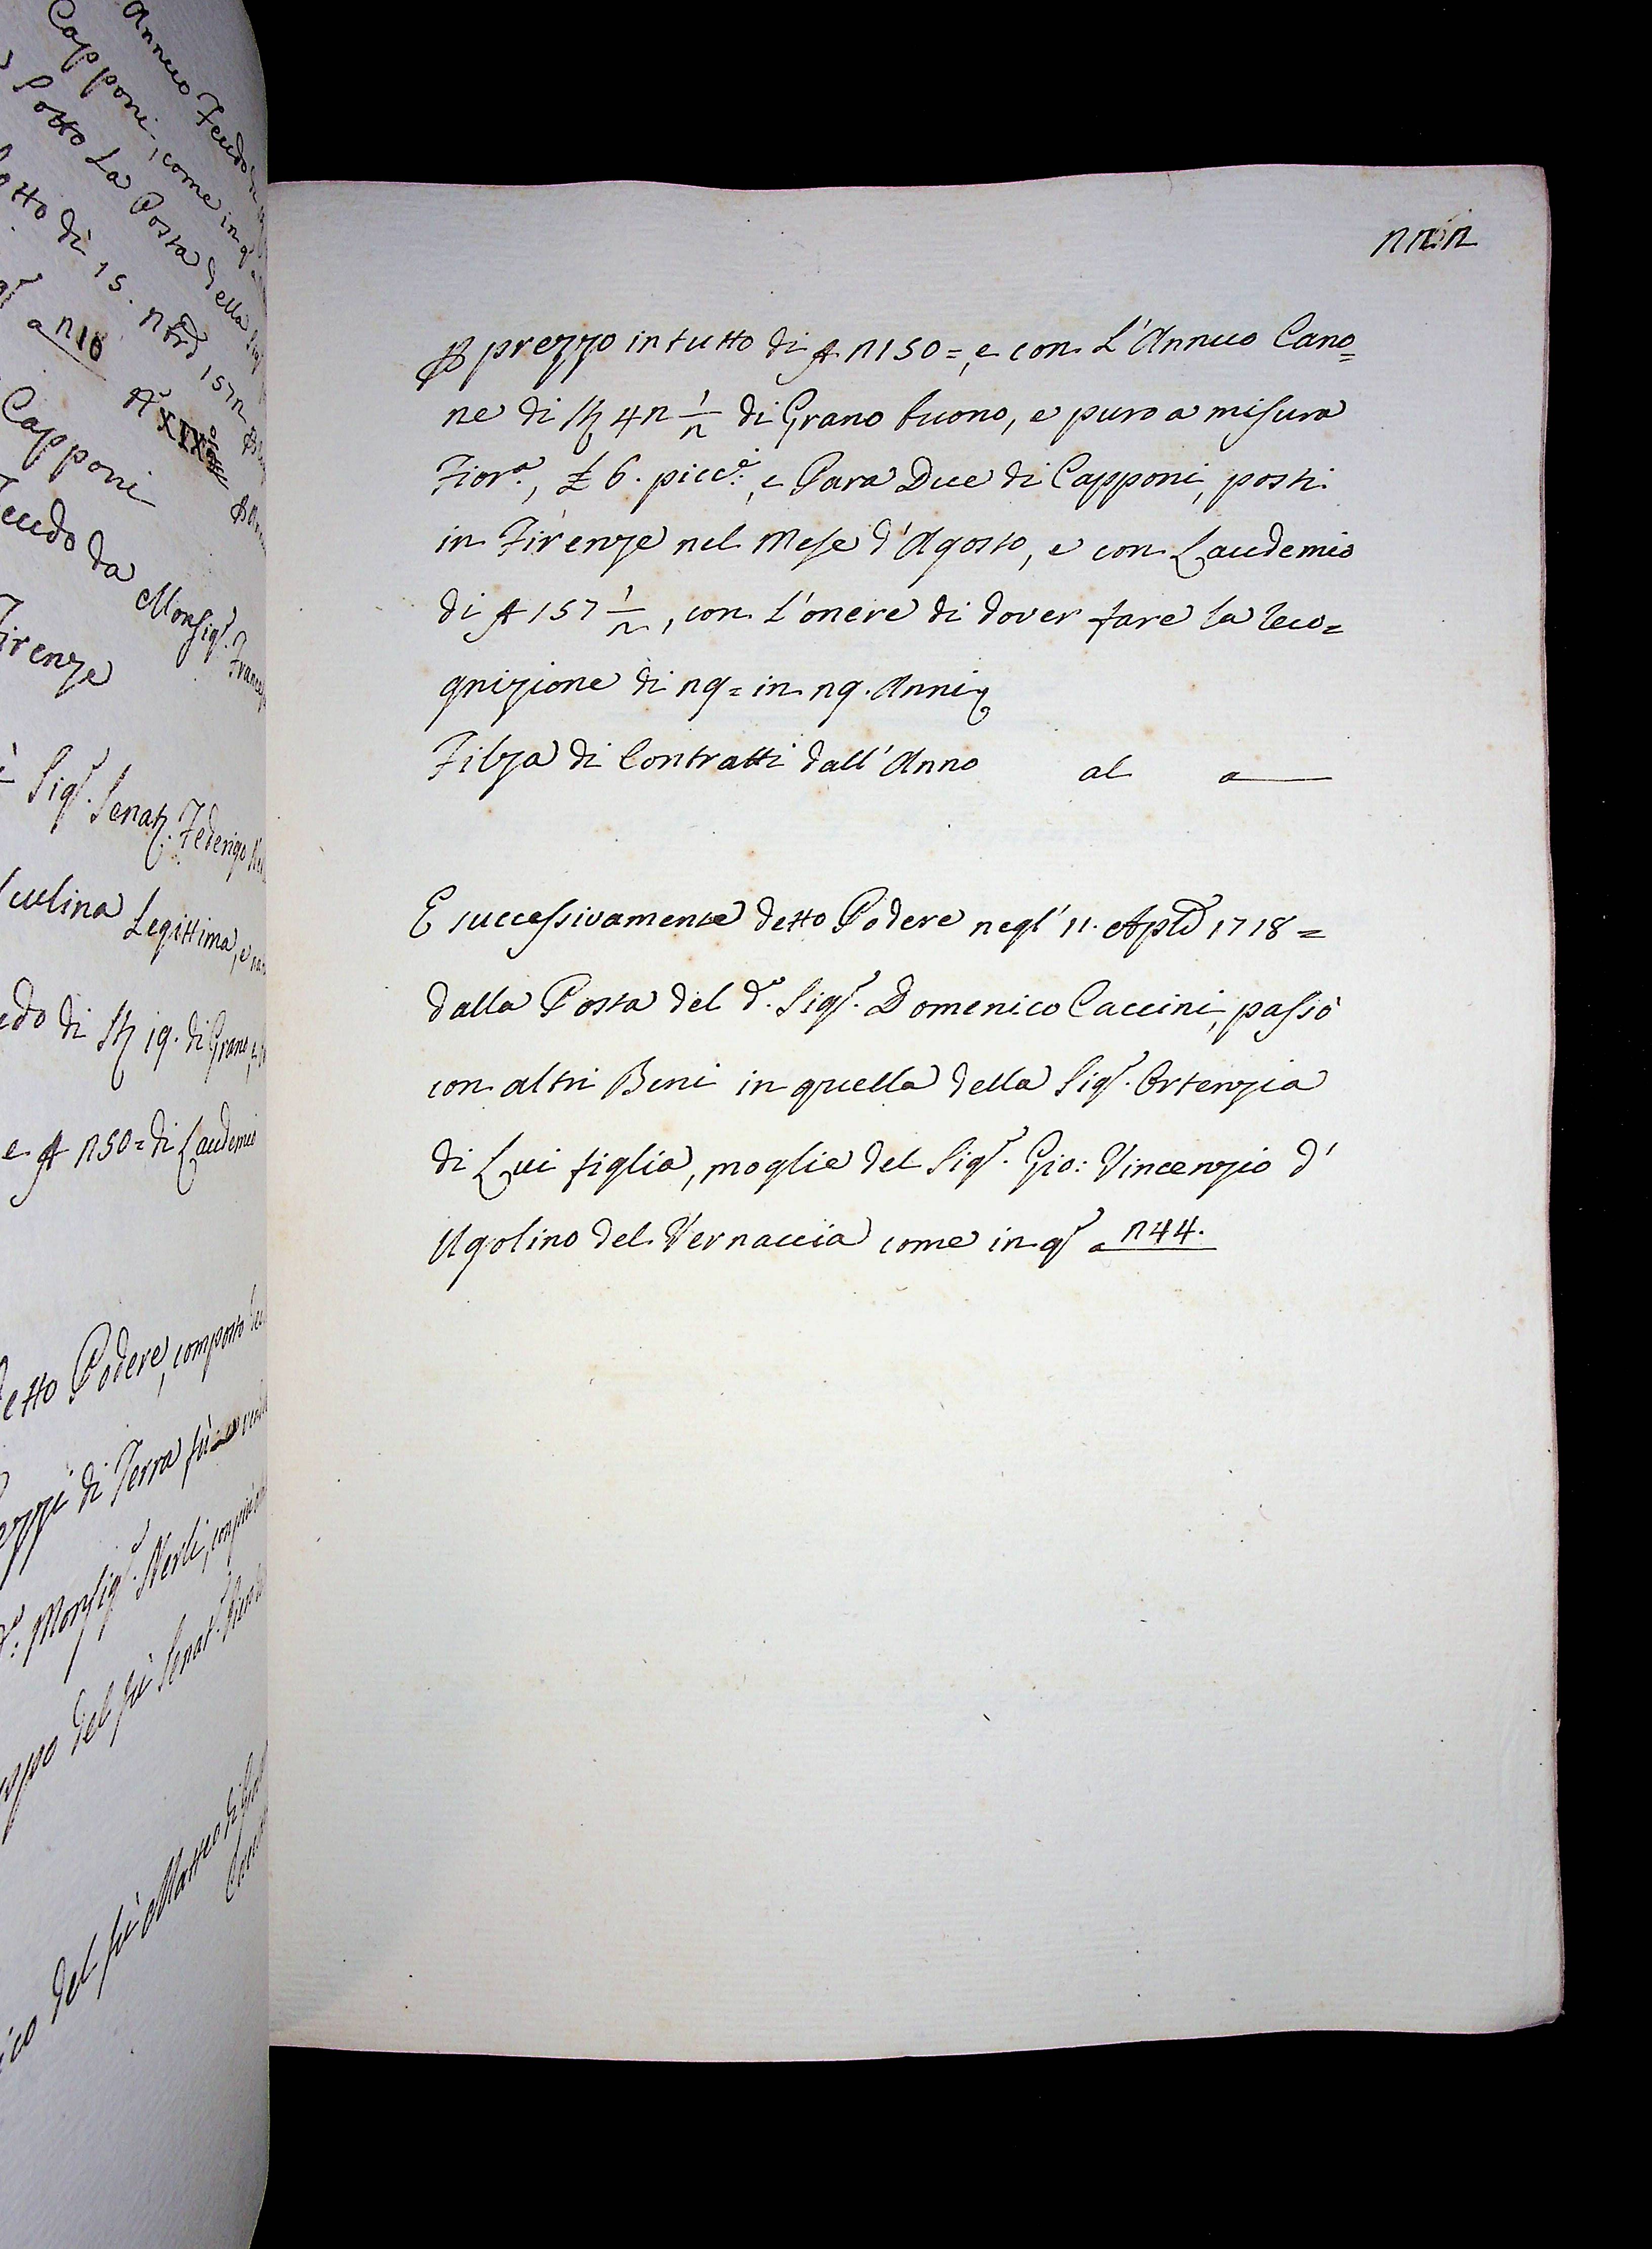 Annuo Feudo di
Capponi, come in q.
Sotto La Posta della Sig.
otto di 15. Nbre 1572
a 210
Capponi
Feudo da Monsig.r
Firenze
Sig.r Senat.r Federigo
culina Legittima, e
di St 19. di Grano,
e ∆ 250= di Laudemio
detto Podere, composto
ezzi di Terra fù
d.o Monsig.r Nerli,
del fù Senat.r
del fù Matteo di
222
P prezzo in tutto di ∆ 2150=, e con L'Annuo Cano=
ne di St 42 1/2 di Grano buono, e puro a misura
Fior.a, £ 6. picc.e, e Para Due di Capponi, posti
in Firenze nel Mese d'Agosto, e con Laudemio
di ∆ 157 1/2, con L'onere di dover fare la Reco=
gnizione di 29= in 29. Anni
Filza di Contratti dall'Anno al a
E successivamente detto Podere negl'11. Aple 1718=
dalla Posta del d.o Sig.r Domenico Caccini, passò
con altri Beni in quella della Sig.r Ortenzia
di Lui figlia, moglie del Sig.r Gio: Vincenzio d'
Ugolino del Vernaccia come in q.o a 244.